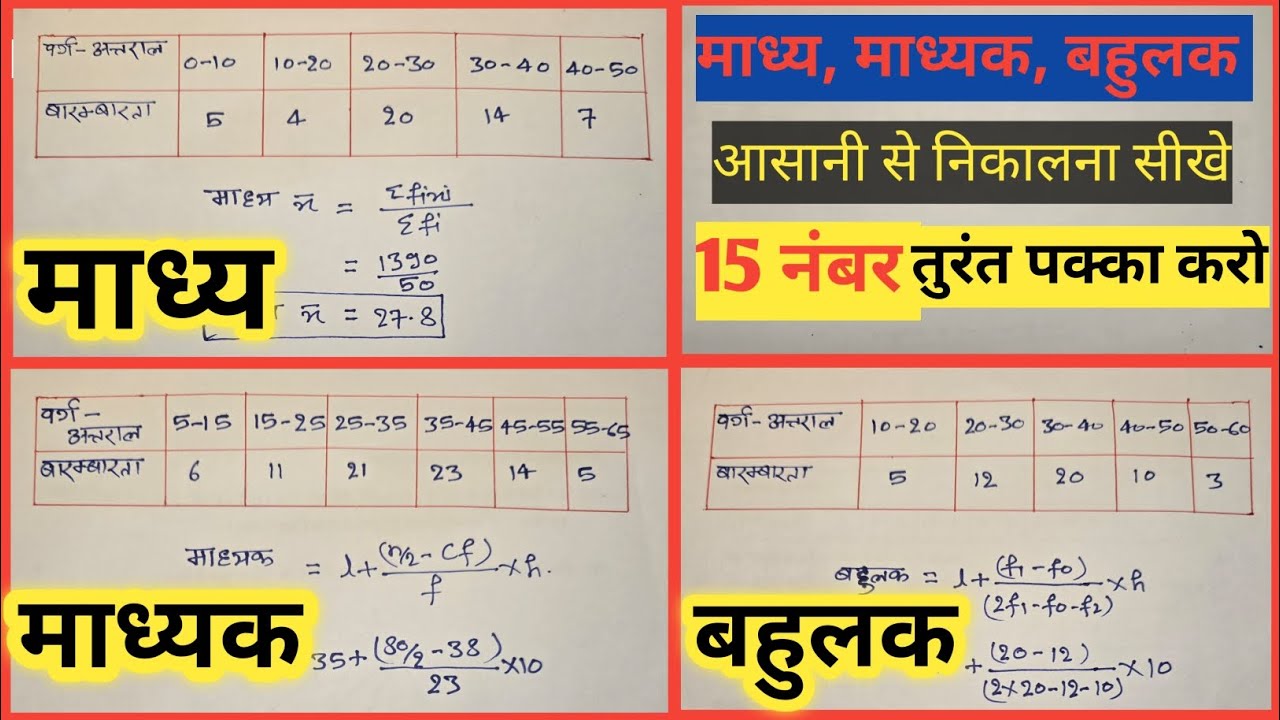 वर्ग-अन्तराल 0-10 10-20 20-30 30-40 40-50
बारम्बारता 5 4 20 14 7
माध्य x̄ = Σfixi / Σfi
= 1390 / 50
x̄ = 27.8
माध्य
माध्य, माध्यक, बहुलक
आसानी से निकालना सीखे
15 नंबर तुरंत पक्का करो
वर्ग-अन्तराल 5-15 15-25 25-35 35-45 45-55 55-65
बारम्बारता 6 11 21 23 14 5
माध्यक = l+ (n/2-Cf) / f ×h.
35+ (80/2-38) / 23 ×10
माध्यक
वर्ग-अन्तराल 10-20 20-30 30-40 40-50 50-60
बारम्बारता 5 12 20 10 3
बहुलक = l+ (f1-f0) / (2f1-f0-f2) ×h
+ (20-12) / (2×20-12-10) ×10
बहुलक